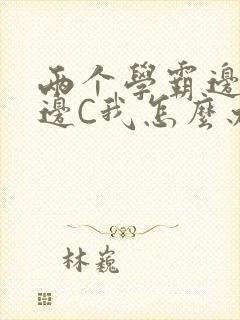 两个學霸邊
邊C我怎麼
林巍